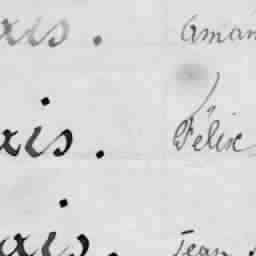 ais. Aman
ais. Félix
ais. Jean